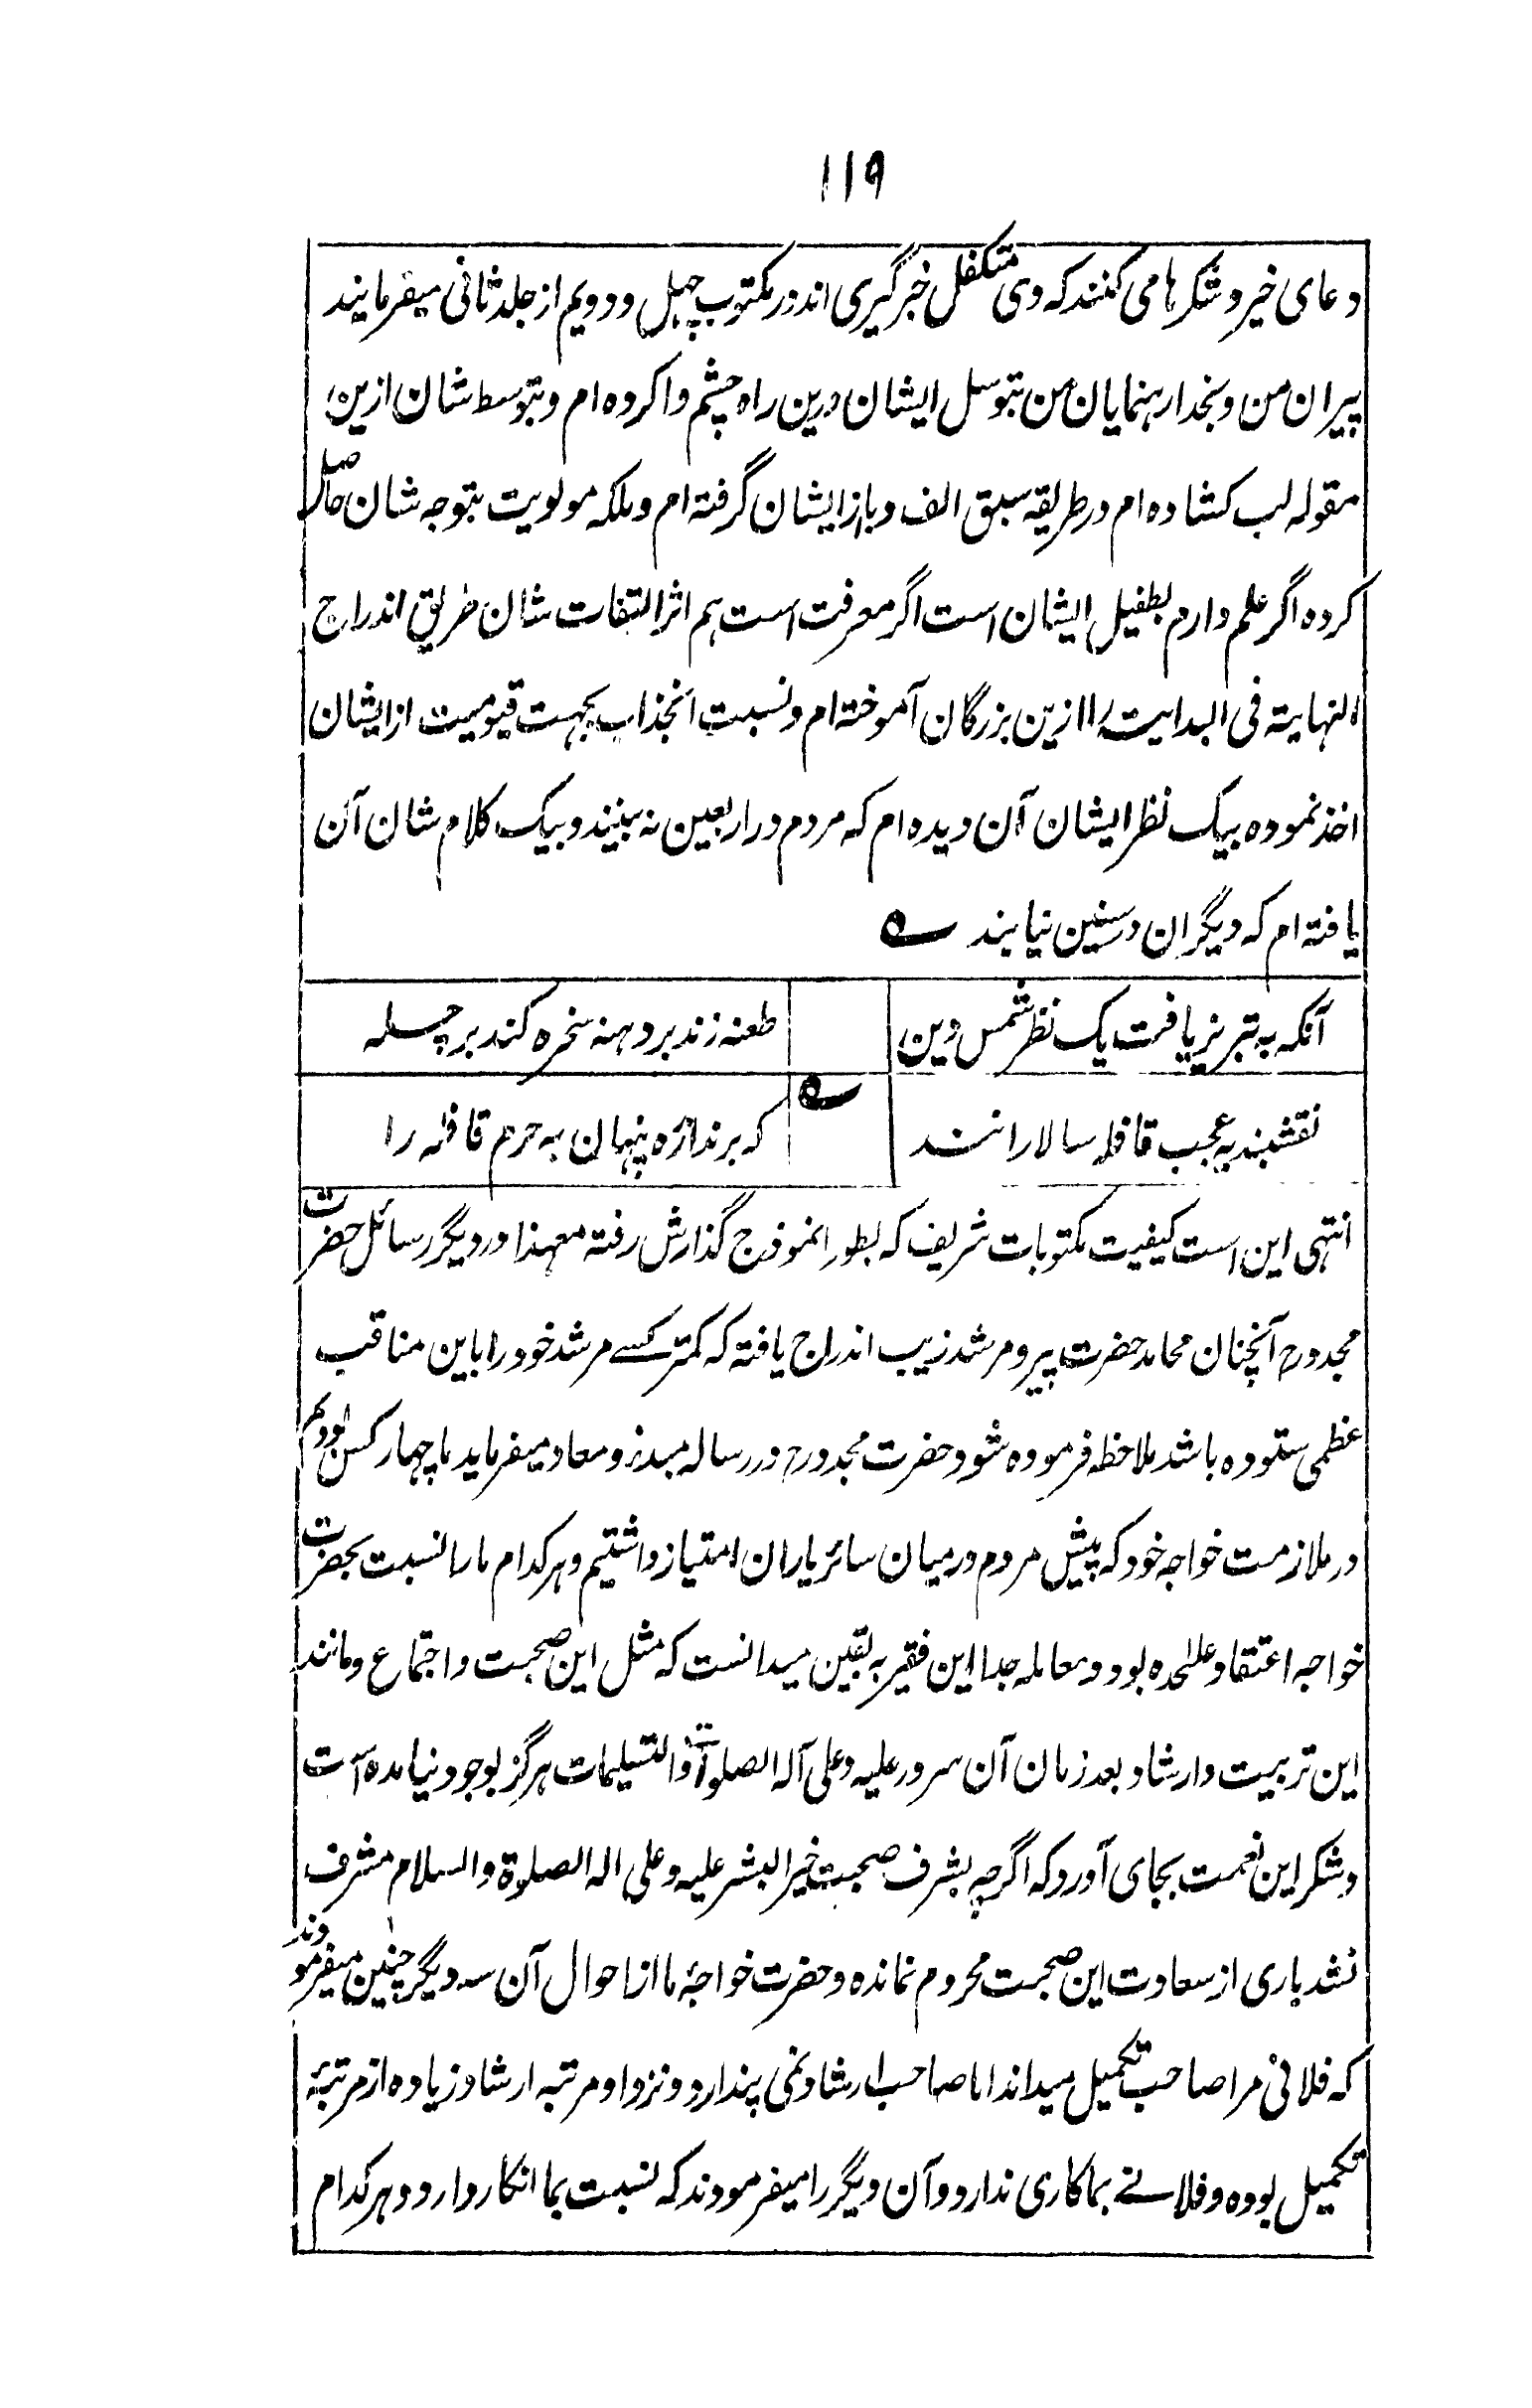 ۱۱۹
دعای خیر و شکرها می کنند که وی متکفل خبرگیری اند در مکتوب چهل و دویم از جلد ثانی میفرمایند
پیران من و بخدا رهنمایان من بتوسل ایشان درین راه چشم وا کرده ام و بتوسط شان ازین
مقوله لب کشاده ام در طریقه سبق الف و با از ایشان گرفته ام و ملکه مولویت بتوجه شان حاصل
کرده اگر علم دارم بطفیل ایشان است اگر معرفت است هم اثر التفات شان طریق اندراج
النهایته فی البدایت را ازین بزرگان آموخته ام و نسبت انجذاب بجهت قیومیت از ایشان
اخذ نموده بیک نظر ایشان آن دیده ام که مردم در اربعین نه بینند و بیک کلام شان آن
یافته ام که دیگران در سنین نیابند ؎
آنکه به تبریز یافت یک نظر شمس دین
طعنه زند بر دهه سخره کند بر چله
؎
نقشبندیه عجب قافله سالارانند
که برند از ره پنهان به حرم قافله را
انتهی این است کیفیت مکتوبات شریف که بطور انموذج گذارش رفته معهذا در دیگر رسائل حضرت
مجددرح آنچنان محامد حضرت پیر و مرشد زیب اندراج یافته که کمتر کسے مرشد خود را باین مناقب
عظمی ستوده باشد ملاحظه فرموده شود حضرت مجددرح در رساله مبدء و معاد میفرماید ما چهار کس بودیم
در ملازمت خواجه خود که پیش مردم در میان سائر یاران امتیاز داشتیم و هر کدام ما را نسبت بحضرت
خواجه اعتقاد علٰحده بود و معامله جدا این فقیر به یقین میدانست که مثل این صحبت و اجتماع و مانند
این تربیت و ارشاد بعد زمان آن سرور علیه و علی آله الصلوات والتسلیمات هرگز بوجود نیامده است
و شکر این نعمت بجای آورد که اگرچه بشرف صحبت خیر البشر علیه و علی اله الصلوة والسلام مشرف
نشد باری از سعادت این صحبت محروم نمانده و حضرت خواجهٔ ما از احوال آن سه دیگر چنین میفرمودند
که فلانی مرا صاحب تکمیل میداند اما صاحب ارشاد نمی پندارد و نزد او مرتبه ارشاد زیاده از مرتبهٔ
تکمیل بوده و فلانے بما کاری ندارد و آن دیگر را میفرمودند که نسبت بما انکار دارد و هر کدام